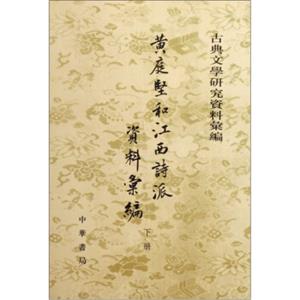 古典文學研究資料彙編
黄庭堅和江西詩派
資料彙編
下册
中華書局